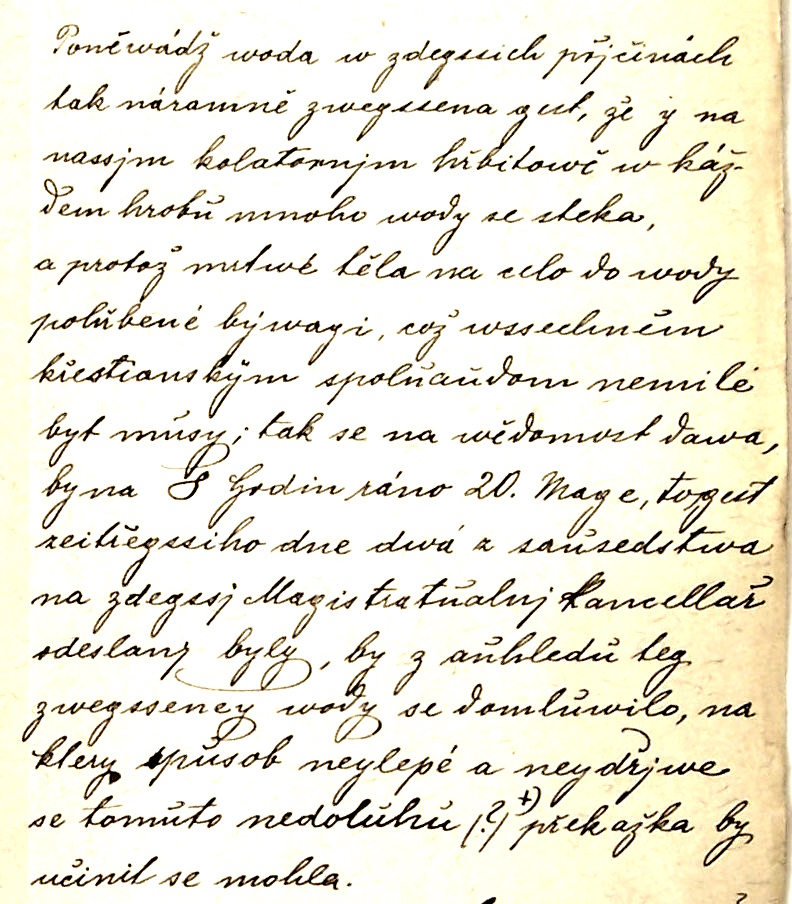 Poněwádž woda w zdegssich přjčinách
tak náramně zwegssena gest, že y na
nassjm kolatornjm hřbitowě w káž-
dem hrobu mnoho wody se steka,
a protož mrtwé těla na celo do wody
pohřbené býwagi, což wssechněm
křestianským spoluaudom nemilé
byt musy; tak se na wědomost dawa,
by na 8 hodin ráno 20. Mage, to gest
zeitřegssiho dne dwá z sausedstwa
na zdegssj Magistratualnj Kancellař
odeslany byly, by z auhledu teg
zwegsseney wody se domluwilo, na
ktery spůsob neylepé a neydřjwe
se tomuto nedoluhu (?) +) překažka by
učinit se mohla.